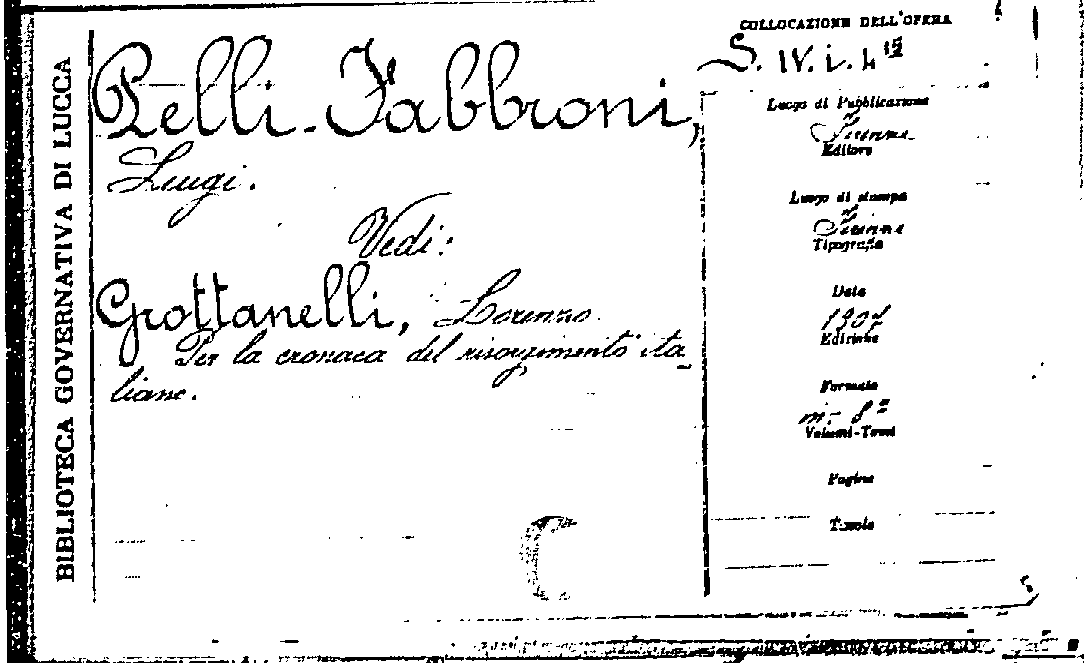 BIBLIOTECA GOVERNATIVA DI LUCCA
Pelli-Fabbroni,
Luigi.
Vedi:
Grottanelli, Lorenzo.
Per la cronaca del risorgimento ita_
liano.
COLLOCAZIONE DELL'OPERA
S. IV. i. 4
Luogo di Pubblicazione
Firenze
Editore
Luogo di stampa
Firenze
Tipografia
Data
Edizione
Formato
in-8°
Volumi-Tomi
Pagine
Tavole
C